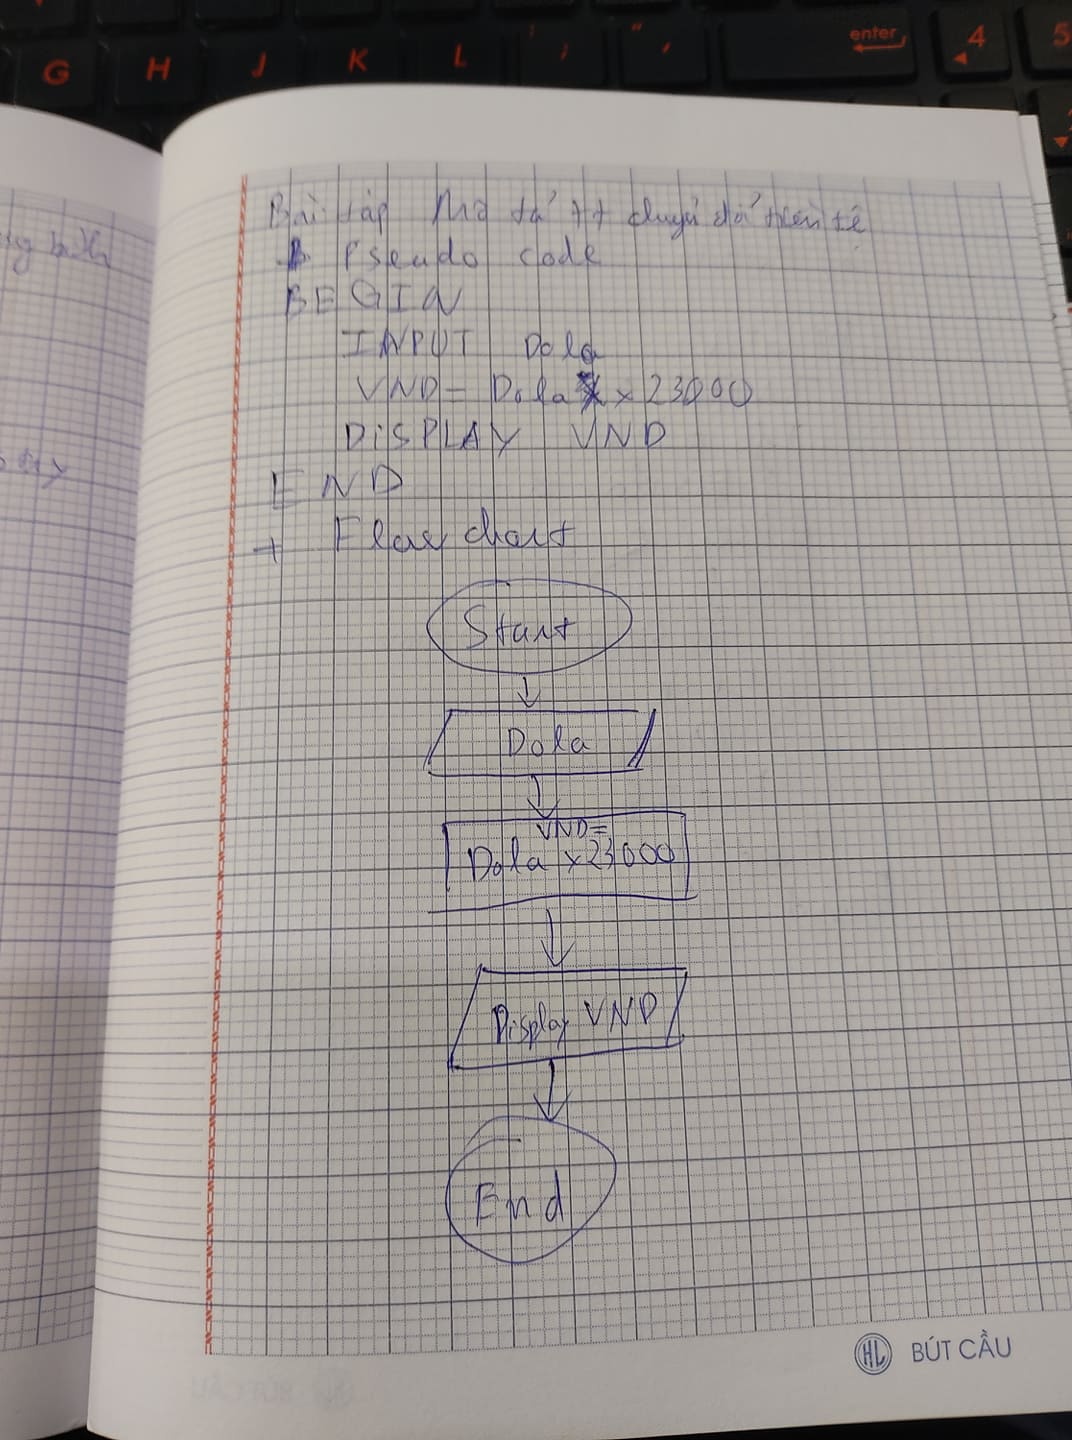 G H J K L ; enter 4 5
Bài tập Mô tả tt chuyển đổi tiền tệ
Pseudo code
BEGIN
INPUT Dola
VND = Dola x 23000
DISPLAY VND
END
+ Flow chart
Start
Dola
VND =
Dola x 23000
Display VND
End
HL BÚT CẦU